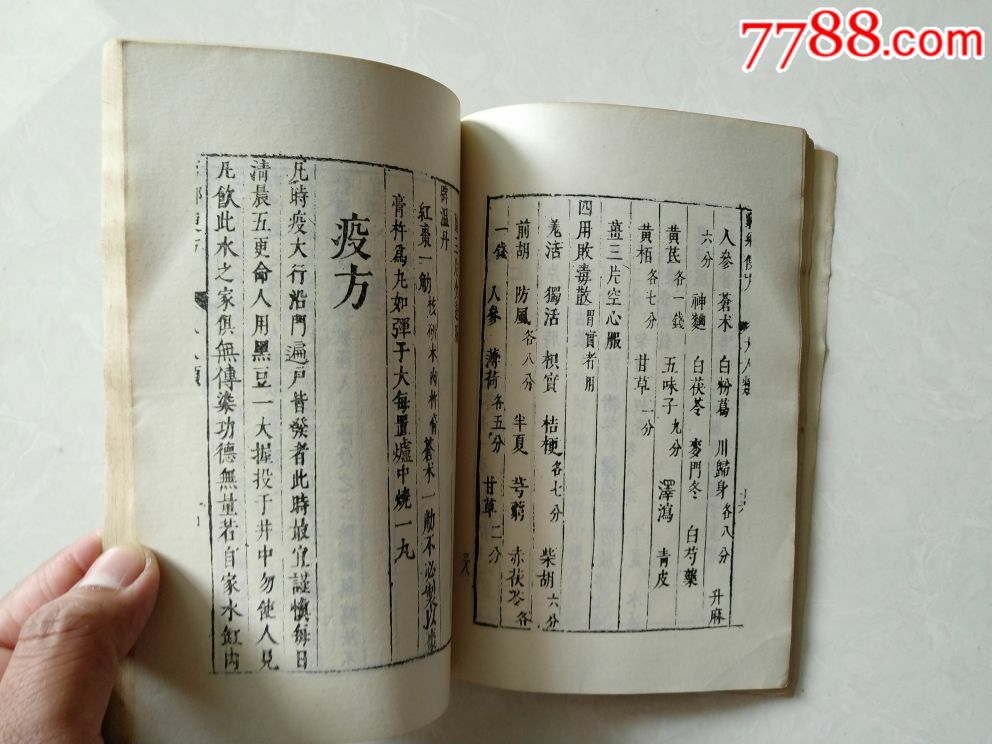 7788.com
人參 蒼朮 白粉葛 川歸身各八分 升麻
六分 神麯 白茯苓 麥門冬 白芍藥
黃芪各一錢 五味子九分 澤瀉 青皮
黃栢各七分 甘草二分
薑三片空心服
四用敗毒散 胃實者用
羗活 獨活 枳實 桔梗各七分 柴胡六分
前胡 防風各八分 半夏 芎藭 赤茯苓各
一錢 人參 薄荷各五分 甘草二分
溫丹
紅棗一觔 蒼朮一觔不必製以
膏杵為丸如彈子大每置爐中燒一丸
疫方
凡時疫大行沿門遍戶皆發者此時故宜謹慎每日
清晨五更命人用黑豆一大握投于井中勿使人見
凡飲此水之家俱無傳染功德無量若自家水缸内